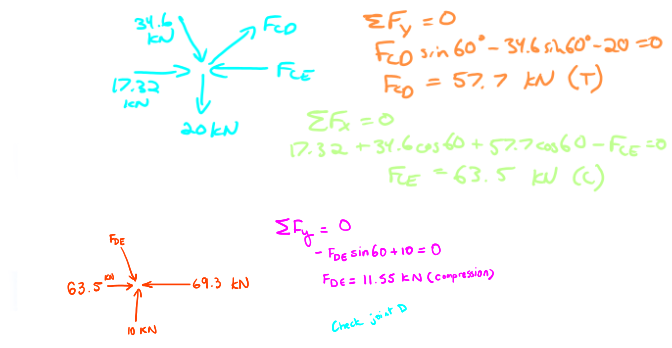 34.6
KN
F_CD
17.32
KN
F_CE
20 KN
ΣF_y = 0
F_CD sin60° - 34.6 sin60° - 20 = 0
F_CD = 57.7 KN (T)
ΣF_x = 0
17.32 + 34.6 cos60 + 57.7 cos60 - F_CE = 0
F_CE = 63.5 KN (C)
F_DE
63.5 KN
69.3 KN
10 KN
ΣF_y = 0
- F_DE sin60 + 10 = 0
F_DE = 11.55 KN (compression)
Check joint D